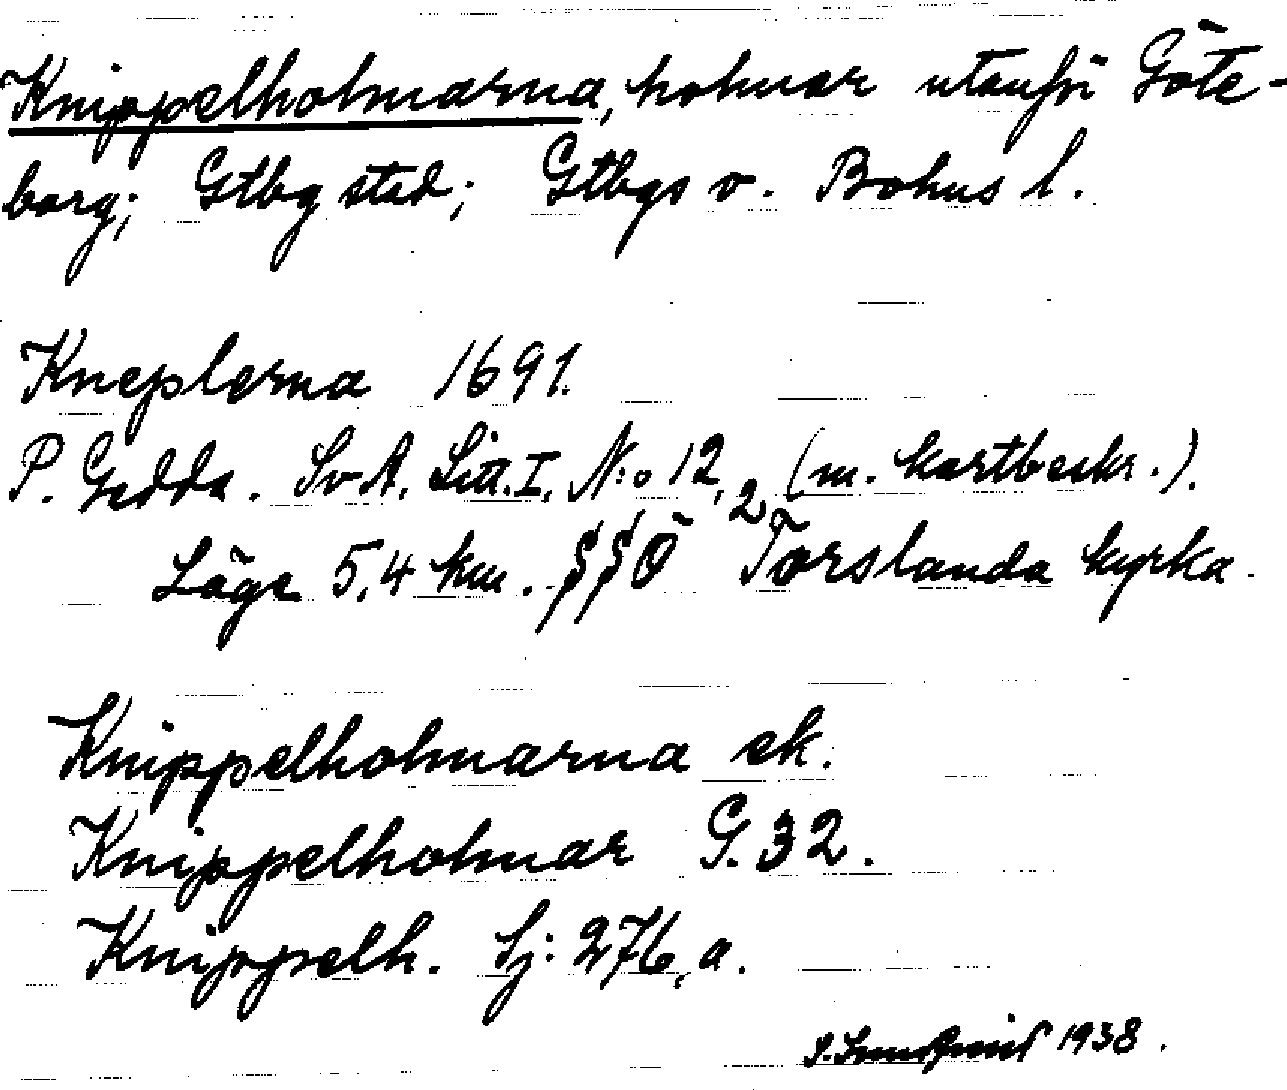 Knippelholmarna, holmar utanför Göte-
borg; Gtbg stad; Gtbgs o. Bohus l.
Kneplerna 1691.
P. Gedda. SvA. Litt. I, N:o 12, 2 (m. kartbeskr.).
Läge 5,4 km. SSÖ Torslanda kyrka.
Knippelholmarna ek.
Knippelholmar G. 32.
Knippelh. Sj: 276, a.
1938.